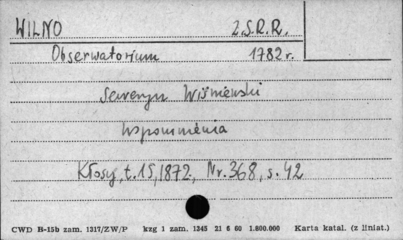 WILNO Z.S.R.R.
Obserwatorium 1782 r.
Seweryn Wiśniewski
Wspomnienia
Kłosy, t. 15, 1872, Nr. 368, s. 42
CWD B-15b zam. 1317/ZW/P kzg 1 zam. 1345 21 6 60 1.800.000 Karta katal. (z liniat.)